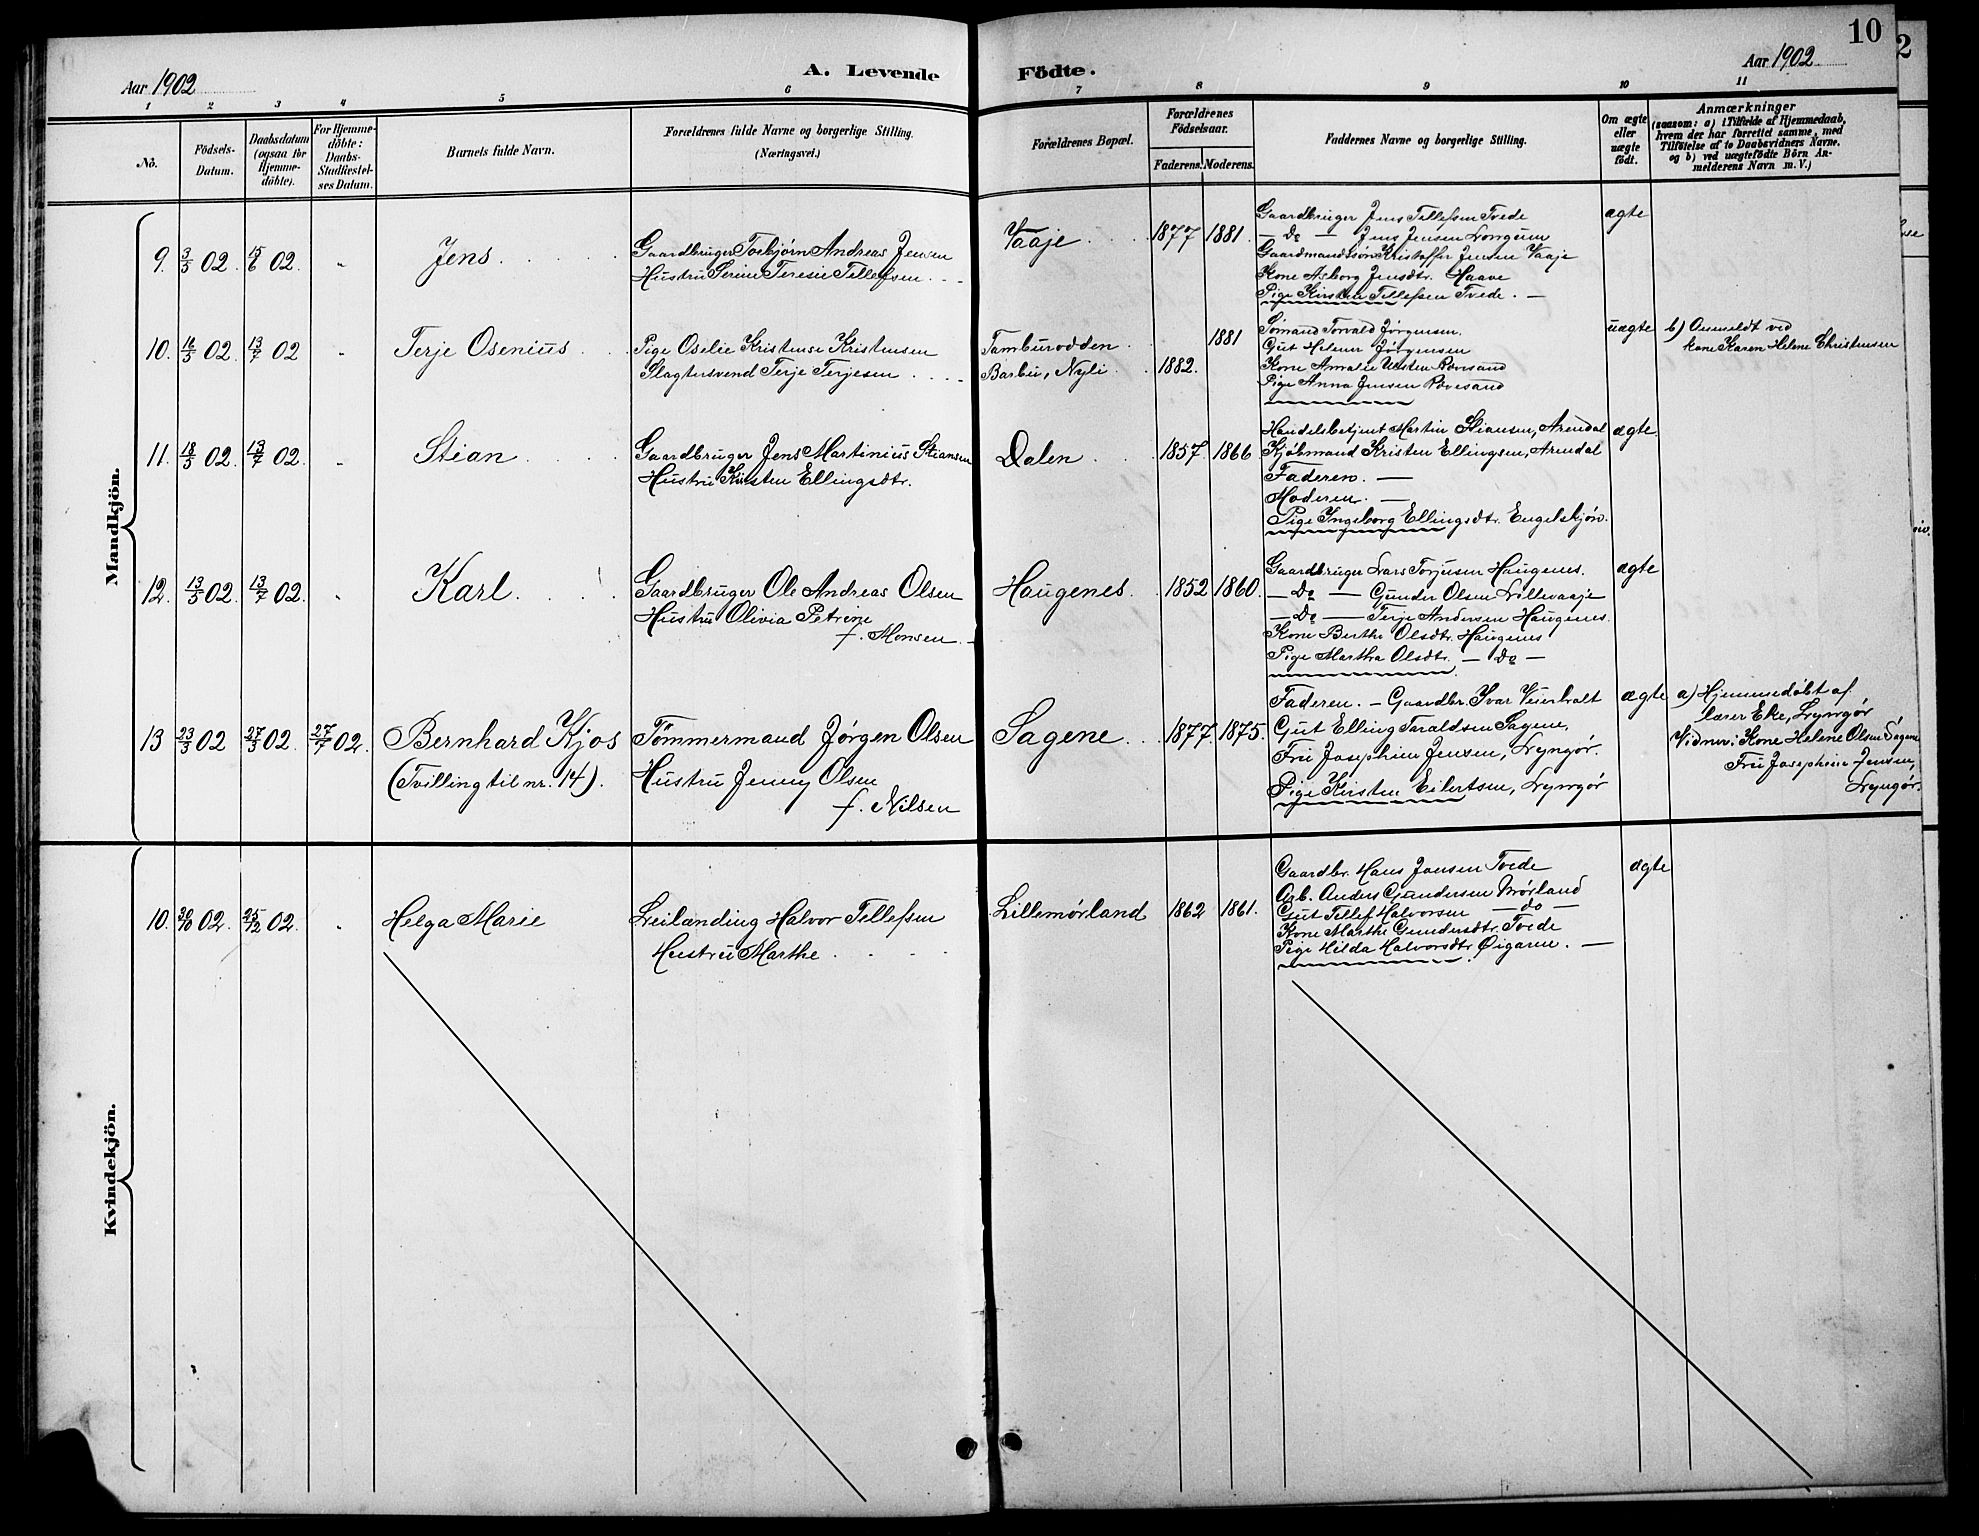 10
2
Aar 1902
A. Levende
Födte.
Aar 1902
1 2 3 4 5 6 7 8 9 10 11
No.
Födsels-
Datum.
Daabsdatum
(ogsaa for
Hjemme-
döbte).
For Hjemme-
döbte:
Daabs-
Stadfæstel-
ses Datum.
Barnets fulde Navn.
Forældrenes fulde Navne og borgerlige Stilling.
(Næringsvei.)
Forældrenes Bopæl.
Forældrenes
Födselsaar.
Faderens. Moderens.
Faddernes Navne og borgerlige Stilling.
Om ægte
eller
uægte
födt.
Anmærkninger
(saasom: a) i Tilfælde af Hjemmedaab,
hvem der har forrettet samme, med
Tilföielse af to Daabsvidners Navne.
og b) ved uægtefödte Börn An-
melderens Navn m. V.)
Mandkjön.
9. 3/5 02. 15/6 02. "
Jens
Gaardbruger Torbjørn Andreas Jensen
Hustru Serine Teresie Tellefsen
Vaaje
1877 1881.
Gaardbruger Jens Tellefsen Tvede
— Do — Jens Jensen Longum
Gaardmandssøn Kristoffer Jensen Vaaje
Kone Asborg Jensdtr. Haave
Pige Kirsten Tellefsen Tvede. —
ægte
10. 16/5 02. 13/7 02 "
Terje Osenius
Pige Oselie Kristense Kristensen
Slagtersvend Terje Terjesen
Tamburodden
Barbu, Nyli
1882. 1881
Sømand Torvald Jørgensen.
Gut Helmer Jørgensen
Kone Amalie Uvsten Revesand
Pige Anna Jensen Revesand
uægte
b) Anmeldt ved
kone Karen Helene Christensen
11. 18/5 02. 13/7 02. "
Stian
Gaardbruger Jens Martinius Stiansen
Hustru Kirsten Ellingsdtr.
Dalen
1857. 1866
Handelsbetjent Martin Stiansen, Arendal
Kjøbmand Kristen Ellingsen, Arendal
Faderen. —
Moderen. —
Pige Ingeborg Ellingsdtr. Engelskjøn.
ægte.
12. 13/5 02. 13/7 02. "
Karl.
Gaardbruger Ole Andreas Olsen
Hustru Olivia Petrine
f. Monsen.
Haugenes.
1852 1860.
Gaardbruger Lars Torjusen Haugenes.
— Do — Gunder Olsen Lillevaaje
— Do — Terje Andersen Haugenes.
Kone Berthe Olsdtr. Haugenes
Pige Martha Olsdtr. — Do —
ægte
13 23/3 02 27/3 02. 27/7 02.
Bernhard Kjos
(Tvilling til nr. 14).
Tömmermand Jørgen Olsen
Hustru Jenny Olsen
f. Nilsen
Sagene.
1877. 1875.
Faderen. — Gaardbr. Ivar Veierholt
Gut Elling Taraldsen Sagene.
Fru Josephine Jensen, Lyngør.
Pige Kirsten Eilertsen, Lyngør
ægte
a) Hjemmedøbt af
lærer Eke, Lyngør
Vidner: Kone Helene Olsen Sagene
Fru Josephine Jensen,
Lyngør.
Kvindekjön.
10. 30/10 02. 25/12 02. "
Helga Marie
Leilænding Halvor Tellefsen
Hustru Marthe
Lillemørland
1862 1861.
Gaardbr. Hans Jensen Tvede
Arb. Anders Gundersen Mørland
Gut Tellef Halvorsen — do —
Kone Marthe Gundersdtr. Tvede
Pige Hilda Halvorsdtr. Øigarne. —
ægte